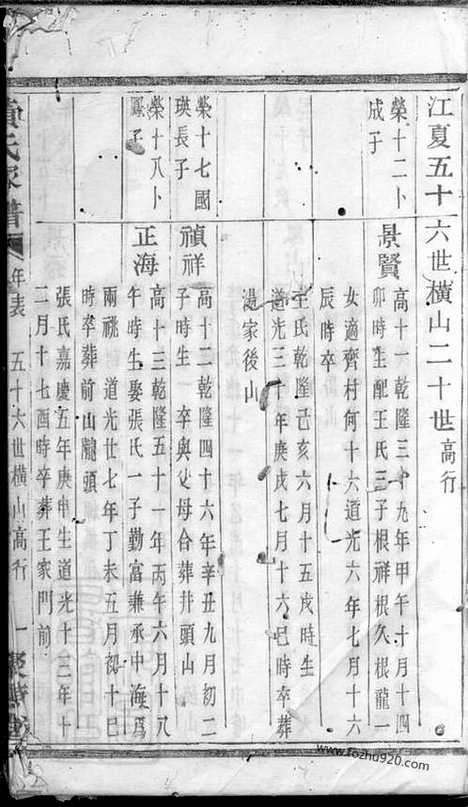 江夏五十六世橫山二十世高行
榮十二卜
成子
景賢
高十一乾隆三十九年甲午十月十四
卯時生配王氏三子根祥根久根龍一
女適齊村何十六道光六年七月十六
辰時卒
王氏乾隆己亥六月十五戌時生
道光三十年庚戌七月十六巳時卒葬
湯家後山
榮十七國
瑛長子
禎祥
高十二乾隆四十六年辛丑九月初二
子時生 卒與父母合葬井頭山
榮十八卜
鳳子
正海
高十三乾隆五十一年丙午六月十八
午時生娶張氏一子勤富兼承中海爲
兩祧 道光廿七年丁未五月初十巳
時卒葬前山隴頭
張氏嘉慶五年庚申生道光十三年十
二月十七酉時卒葬王家門前
氏家譜
年表 五十六世橫山高行 一
www.fozhu920.com